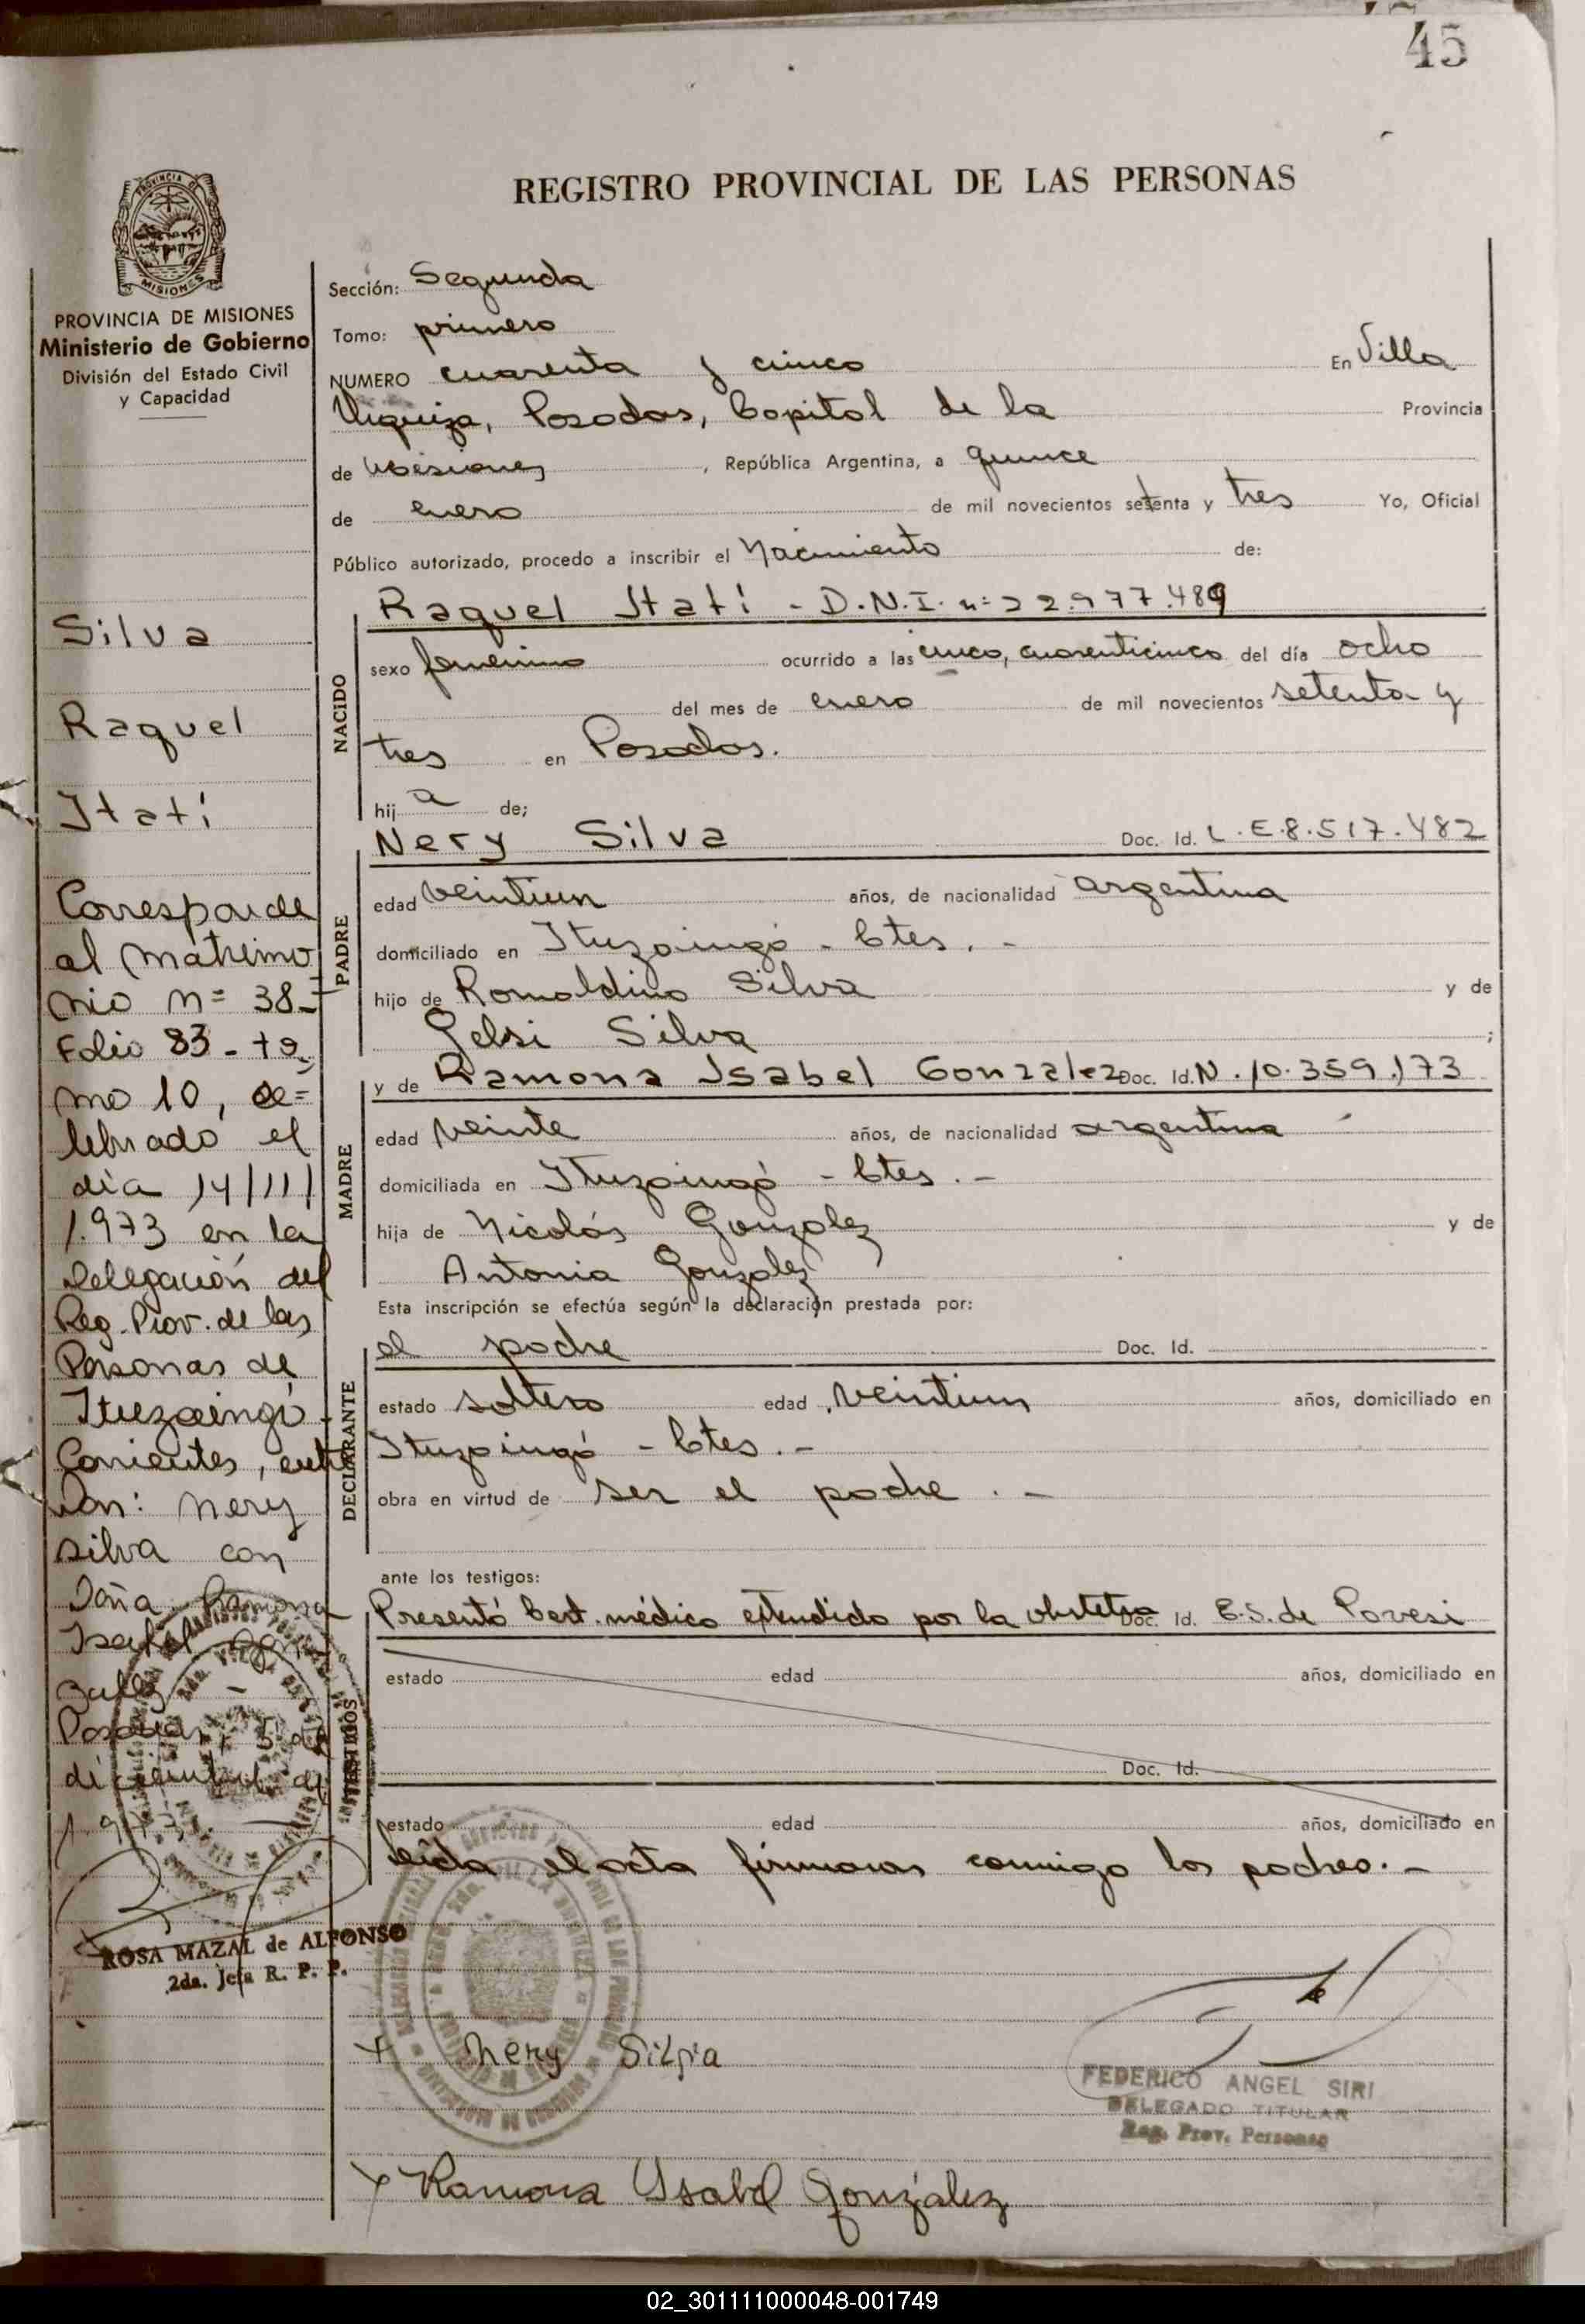 45
REGISTRO PROVINCIAL DE LAS PERSONAS
PROVINCIA DE MISIONES
Ministerio de Gobierno
División del Estado Civil
y Capacidad
Silva
Raquel
Itatí
Corresponde
al matrimo
nio n= 38-
Folio 83 - to
mo 10, ce=
lebrado el
día 14/11/
1.973 en la
Delegación del
Reg. Prov. de las
Personas de
Ituzaingó -
Corrientes, entre
Don: Nery
Silva con
Doña Ramona
Isabel Gon
zalez -
Posadas, 5 de
diciembre de
1.973.
ROSA MAZAL de ALFONSO
2da. Jefa R. P. P.
Sección: Segunda
Tomo: primero
NUMERO cuarenta y cinco En Villa
Urquiza, Posadas, Capital de la Provincia
de Misiones, República Argentina, a quince
de enero de mil novecientos setenta y tres Yo, Oficial
Público autorizado, procedo a inscribir el Nacimiento de:
NACIDO
Raquel Itatí - D.N.I. n= 22.977.489
sexo femenino ocurrido a las cinco, cuarenticinco del día ocho
del mes de enero de mil novecientos setenta y
tres en Posadas.
hij a de;
PADRE
Nery Silva Doc. Id. L.E.8.517.482
edad veintiun años, de nacionalidad argentina
domiciliado en Ituzaingó - Ctes. -
hijo de Romaldino Silva y de
Gelsi Silva ;
MADRE
y de Ramona Isabel Gonzalez Doc. Id. N. 10.359.173
edad veinte años, de nacionalidad argentina
domiciliada en Ituzaingó - Ctes. -
hija de Nicolás Gonzalez y de
Antonia Gonzalez
Esta inscripción se efectúa según la declaración prestada por:
DECLARANTE
el padre Doc. Id.
estado soltero edad veintiun años, domiciliado en
Ituzaingó - Ctes. -
obra en virtud de ser el padre. -
ante los testigos:
TESTIGOS
Presentó Cert. médico extendido por la obstetra Doc. Id. E.S. de Povesi
estado edad años, domiciliado en
Doc. Id.
estado edad años, domiciliado en
leída el acta firmaron conmigo los padres. -
x Nery Silvia
FEDERICO ANGEL SIRI
DELEGADO TITULAR
Reg. Prov. Personas
x Ramona Ysabel González
02_301111000048-001749